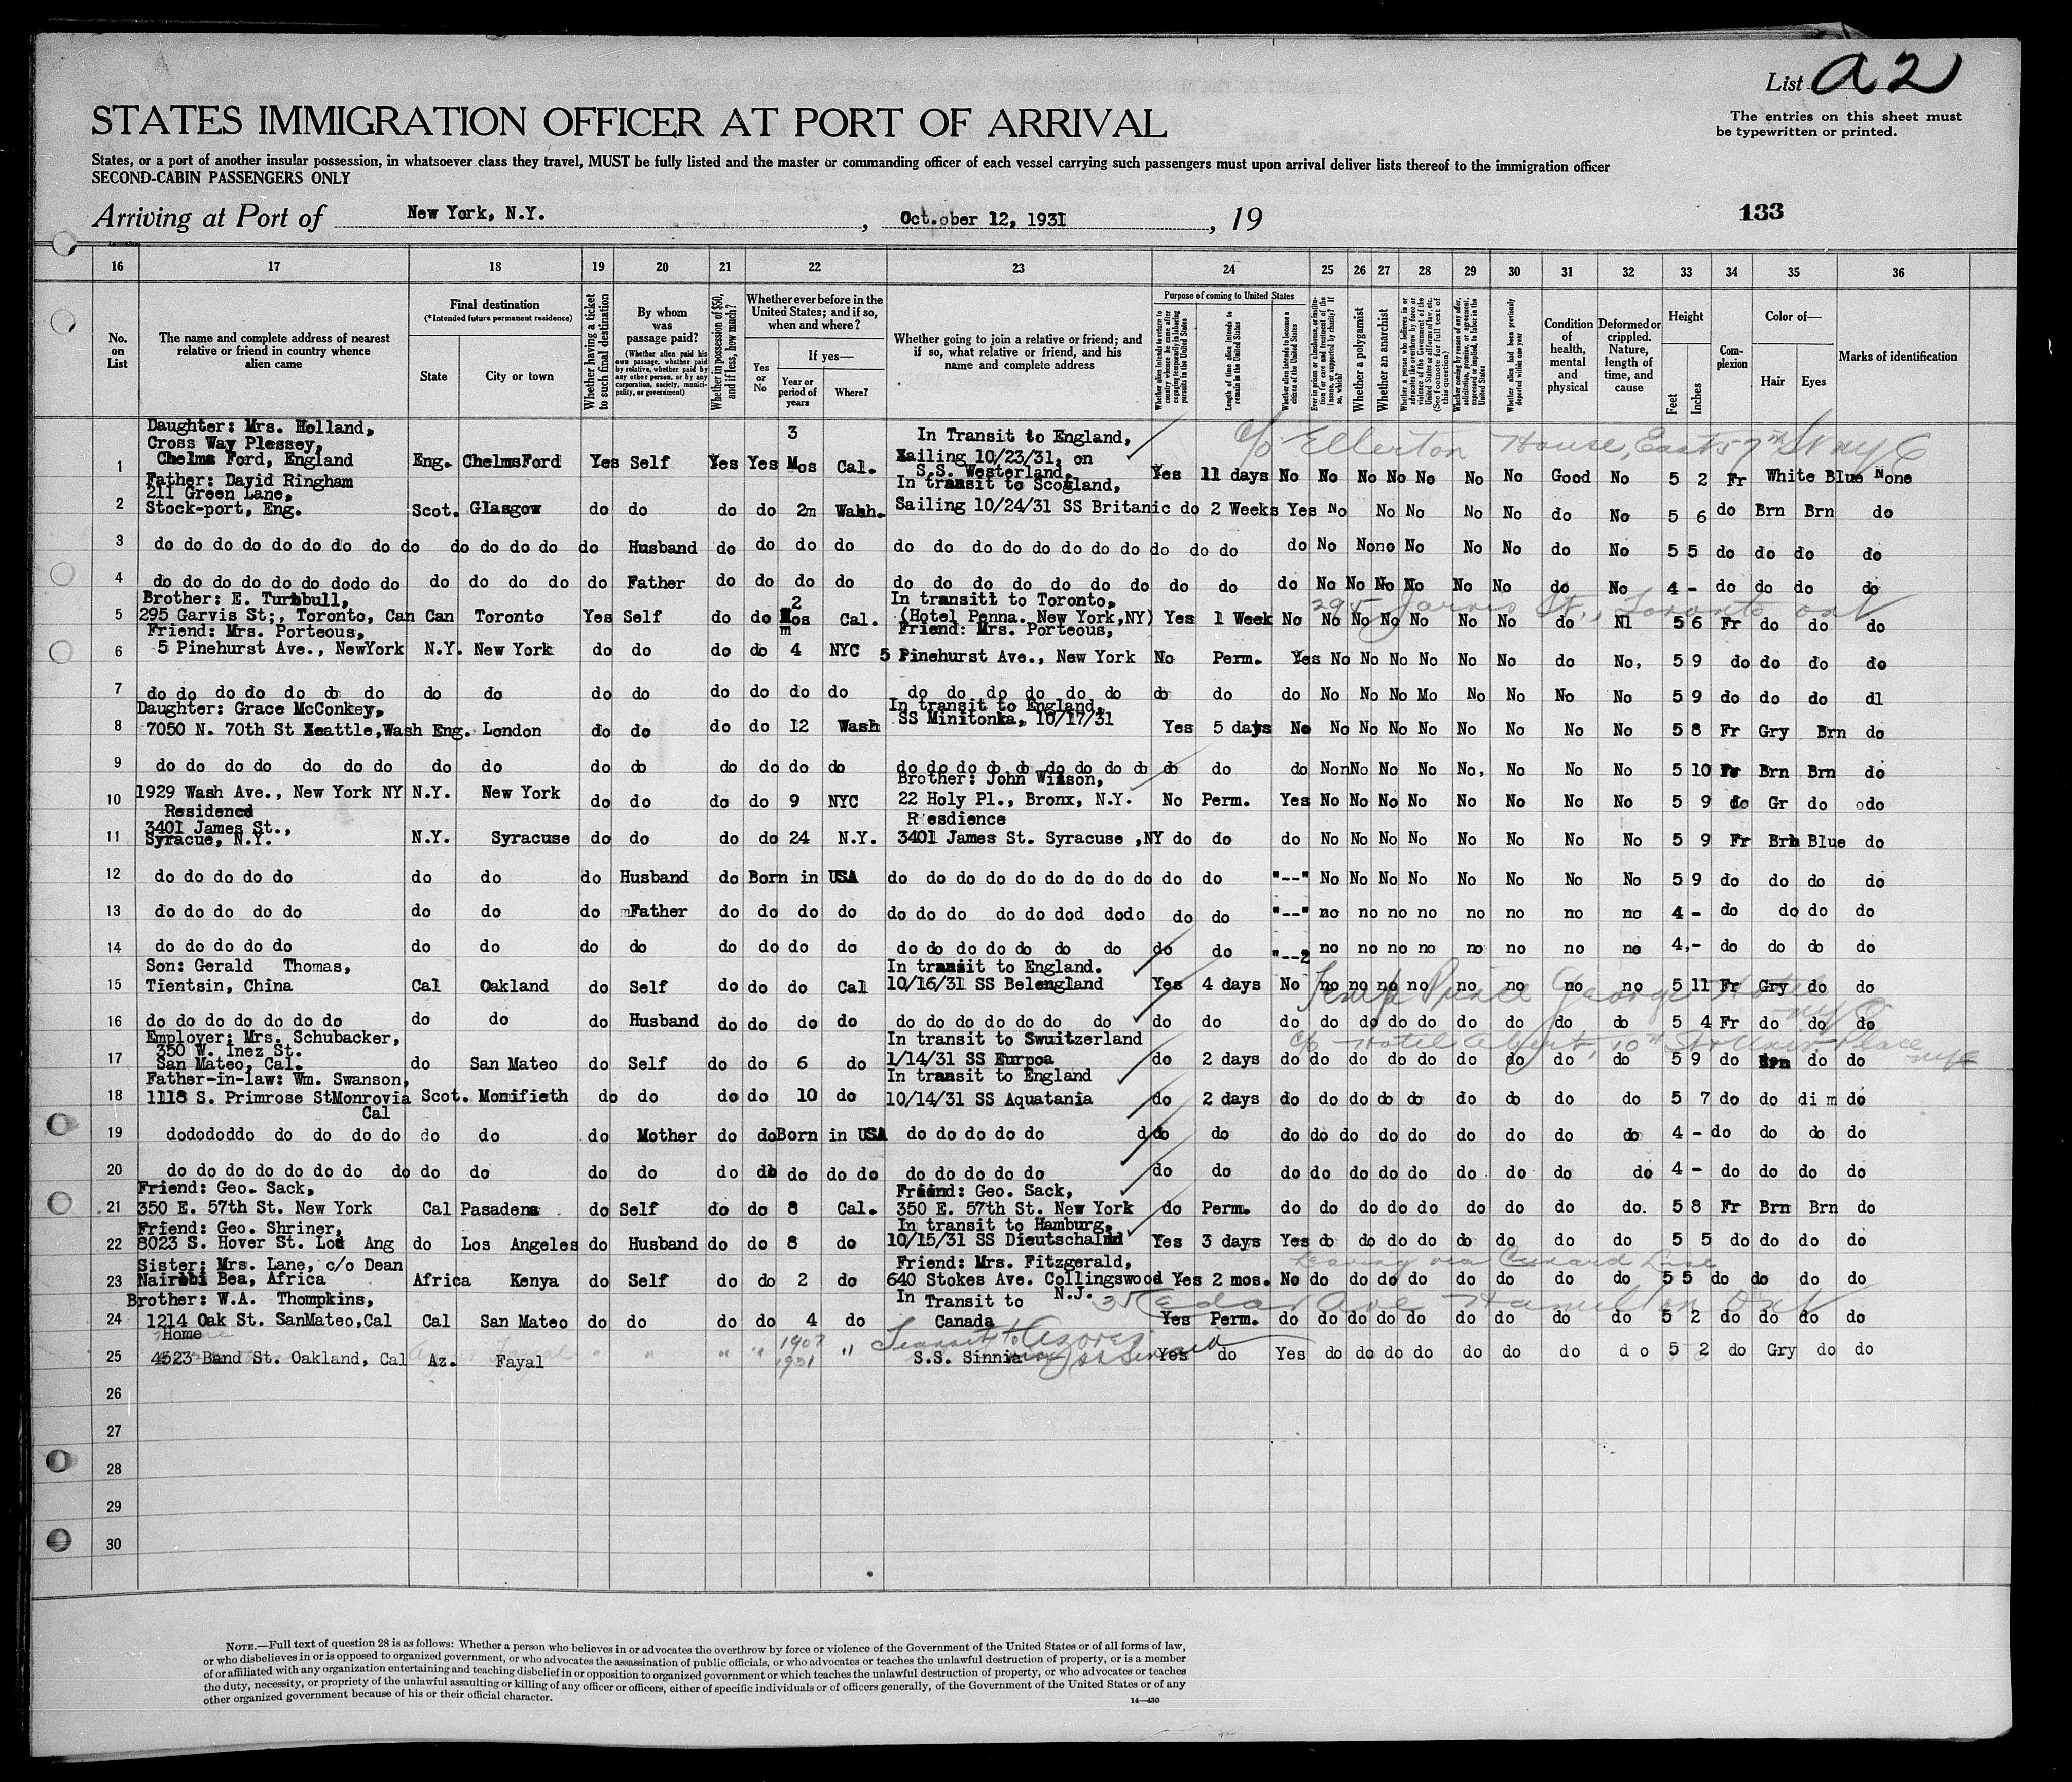 List A2
The entries on this sheet must
be typewritten or printed.
STATES IMMIGRATION OFFICER AT PORT OF ARRIVAL
States, or a port of another insular possession, in whatsoever class they travel, MUST be fully listed and the master or commanding officer of each vessel carrying such passengers must upon arrival deliver lists thereof to the immigration officer
SECOND-CABIN PASSENGERS ONLY
Arriving at Port of New York, N.Y. , Oct.ober 12, 1931 , 19
133
16 17 18 19 20 21 22 23 24 25 26 27 28 29 30 31 32 33 34 35 36
No. on List
The name and complete address of nearest relative or friend in country whence alien came
Final destination
(*Intended future permanent residence)
State
City or town
Whether having a ticket to such final destination
By whom was passage paid?
(Whether alien paid his own passage, whether paid by relative, whether paid by any other person, or by any corporation, society, municipality, or government)
Whether in possession of $50, and if less, how much?
Whether ever before in the United States; and if so, when and where?
Yes or No
If yes—
Year or period of years
Where?
Whether going to join a relative or friend; and if so, what relative or friend, and his name and complete address
Purpose of coming to United States
Length of time alien intends to remain in the United States
Whether alien intends to become a citizen of the United States
Whether a polygamist
Whether an anarchist
Whether alien had been previously deported within one year
Condition of health, mental and physical
Deformed or crippled. Nature, length of time, and cause
Height
Feet
Inches
Complexion
Color of—
Hair
Eyes
Marks of identification
Daughter: Mrs. Holland,
Cross Way Plessey, 3 In Transit to England, c/o Ellerton House, East 57th St NYC
1 Chelms Ford, England Eng. ChelmsFord Yes Self Yes Yes Mos Cal. Sailing 10/23/31, on
S.S. Westerland, Yes 11 days No No No No No No No Good No 5 2 Fr White Blue None
Father: David Ringham In transit to Scotland,
211 Green Lane,
2 Stock-port, Eng. Scot. Glasgow do do do do 2m Wahh. Sailing 10/24/31 SS Britanic do 2 Weeks Yes No No No No No do No 5 6 do Brn Brn do
3 do do do do do do do do do do do do do do Husband do do do do do do do do do do do do do do do do do No Nono No No No do No 5 5 do do do do
4 do do do do do do dodo do do do do do do Father do do do do do do do do do do do do do do No No No No No No do No 4 - do do do do
Brother: E. Turnbull, 2 In transitl to Toronto, 295 Jarvis St., Toronto Ont
5 295 Garvis St;, Toronto, Can Can Toronto Yes Self do do Mos Cal. (Hotel Penna. New York,NY) Yes 1 Week No No No No No No No do Nl 5 6 Fr do do do
Friend: Mrs. Porteous, m Friend: Mrs. Porteous,
6 5 Pinehurst Ave., NewYork N.Y. New York do do do do 4 NYC 5 Pinehurst Ave., New York No Perm. Yes No No No No No No do No, 5 9 do do do do
7 do do do do do do do do do do do do do do do do do do do do do do do do No No No Mo No No No No 5 9 do do do dl
Daughter: Grace McConkey, In transit to England,
8 7050 N. 70th St Seattle,Wash Eng. London do do do do 12 Wash SS Minitonka, 10/17/31 Yes 5 days No No No No No No No No No 5 8 Fr Gry Brn do
9 do do do do do do do do do do do do do do do do do do do do do do do do do do do NonNo No No No, No No No 5 10 Fr Brn Brn do
Brother: John Wilson,
10 1929 Wash Ave., New York NY N.Y. New York do do do do 9 NYC 22 Holy Pl., Bronx, N.Y. No Perm. Yes No No No No No No No No 5 9 do Gr do odo
Residence R'esdience
3401 James St.,
11 Syracue, N.Y. N.Y. Syracuse do do do do 24 N.Y. 3401 James St. Syracuse ,NY do do do No No No No No No No No 5 9 Fr Brn Blue do
12 do do do do do do do do Husband do Born in USA do do do do do do do do do do do "--" No No No No No No No No 5 9 do do do do
13 do do do do do do do do Father do do do do do do do do do dod dodo do do "--" no no no no no no no no 4 - do do do do
14 do do do do do do do do do do do do do do do do do do do do do do "--2 no no no no no no no no 4,- do do do do
Son: Gerald Thomas, In transit to England. Temp Prince George Hotel
15 Tientsin, China Cal Oakland do Self do do do Cal 10/16/31 SS Belengland Yes 4 days No no no no no no no no no 5 11 Fr Gry do do
NYC
16 do do do do do do do do do do Husband do do do do do do do do do do do do do do do do do do do do do do 5 4 Fr do do do
Employer: Mrs. Schubacker, In transit to Swuitzerland c/o Hotel Albert, 10th St & Univ. Place NYC
350 W. Inez St.
17 San Mateo, Cal. do San Mateo do Self do do 6 do 1/14/31 SS Eurpoa do 2 days do do do do do do do do do 5 9 do Brn do do
Father-in-law: Wm. Swanson, In transit to England
18 1118 S. Primrose StMonrovia Scot. Monifieth do do do do 10 do 10/14/31 SS Aquatania do 2 days do do do do do do do do do 5 7 do do di m do
Cal
19 dodododdo do do do do do do do Mother do do Born in USA do do do do do do do do do do do do do do do do 4 - do do do do
20 do do do do do do do do do do do do do do do do do do do do do do do do do do do do do do do do do do do 4 - do do do do
Friend: Geo. Sack, Friend: Geo. Sack,
21 350 E. 57th St. New York Cal Pasadena do Self do do 8 Cal. 350 E. 57th St. New York do Perm. do do do do do do do do do. 5 8 Fr Brn Brn do
Friend: Geo. Shriner, In transit to Hamburg,
22 8023 S. Hover St. Los Ang do Los Angeles do Husband do do 8 do 10/15/31 SS Dieutschalnd Yes 3 days Yes do do do do do do do do 5 5 do do do do
Sister: Mrs. Lane, c/o Dean Friend: Mrs. Fitzgerald, Leaving via Cunard Line
23 Nairobi Bea, Africa Africa Kenya do Self do do 2 do 640 Stokes Ave. Collingswood Yes 2 mos. No do do do do do do do do 5 5 do do do do
Brother: W.A. Thompkins, In Transit to N.J. 35 Cedar Ave Hamilton Ont
24 1214 Oak St. SanMateo,Cal Cal San Mateo do do do do 4 do Canada Yes Perm. do do do do do do do do do 5 2 do do do do
Home 1907 Transit to Azores
25 4523 Band St. Oakland, Cal Az. Fayal " " " " 1931 " S.S. Sinnia Yes do Yes do do do do do do do d o 5 2 do Gry do do
26
27
28
29
30
NOTE.—Full text of question 28 is as follows: Whether a person who believes in or advocates the overthrow by force or violence of the Government of the United States or of all forms of law,
or who disbelieves in or is opposed to organized government, or who advocates the assassination of public officials, or who advocates or teaches the unlawful destruction of property, or is a member
of or affiliated with any organization entertaining and teaching disbelief in or opposition to organized government or which teaches the unlawful destruction of property, or who advocates or teaches
the duty, necessity, or propriety of the unlawful assaulting or killing of any officer or officers, either of specific individuals or of officers generally, of the Government of the United States or of any
other organized government because of his or their official character.
14—430